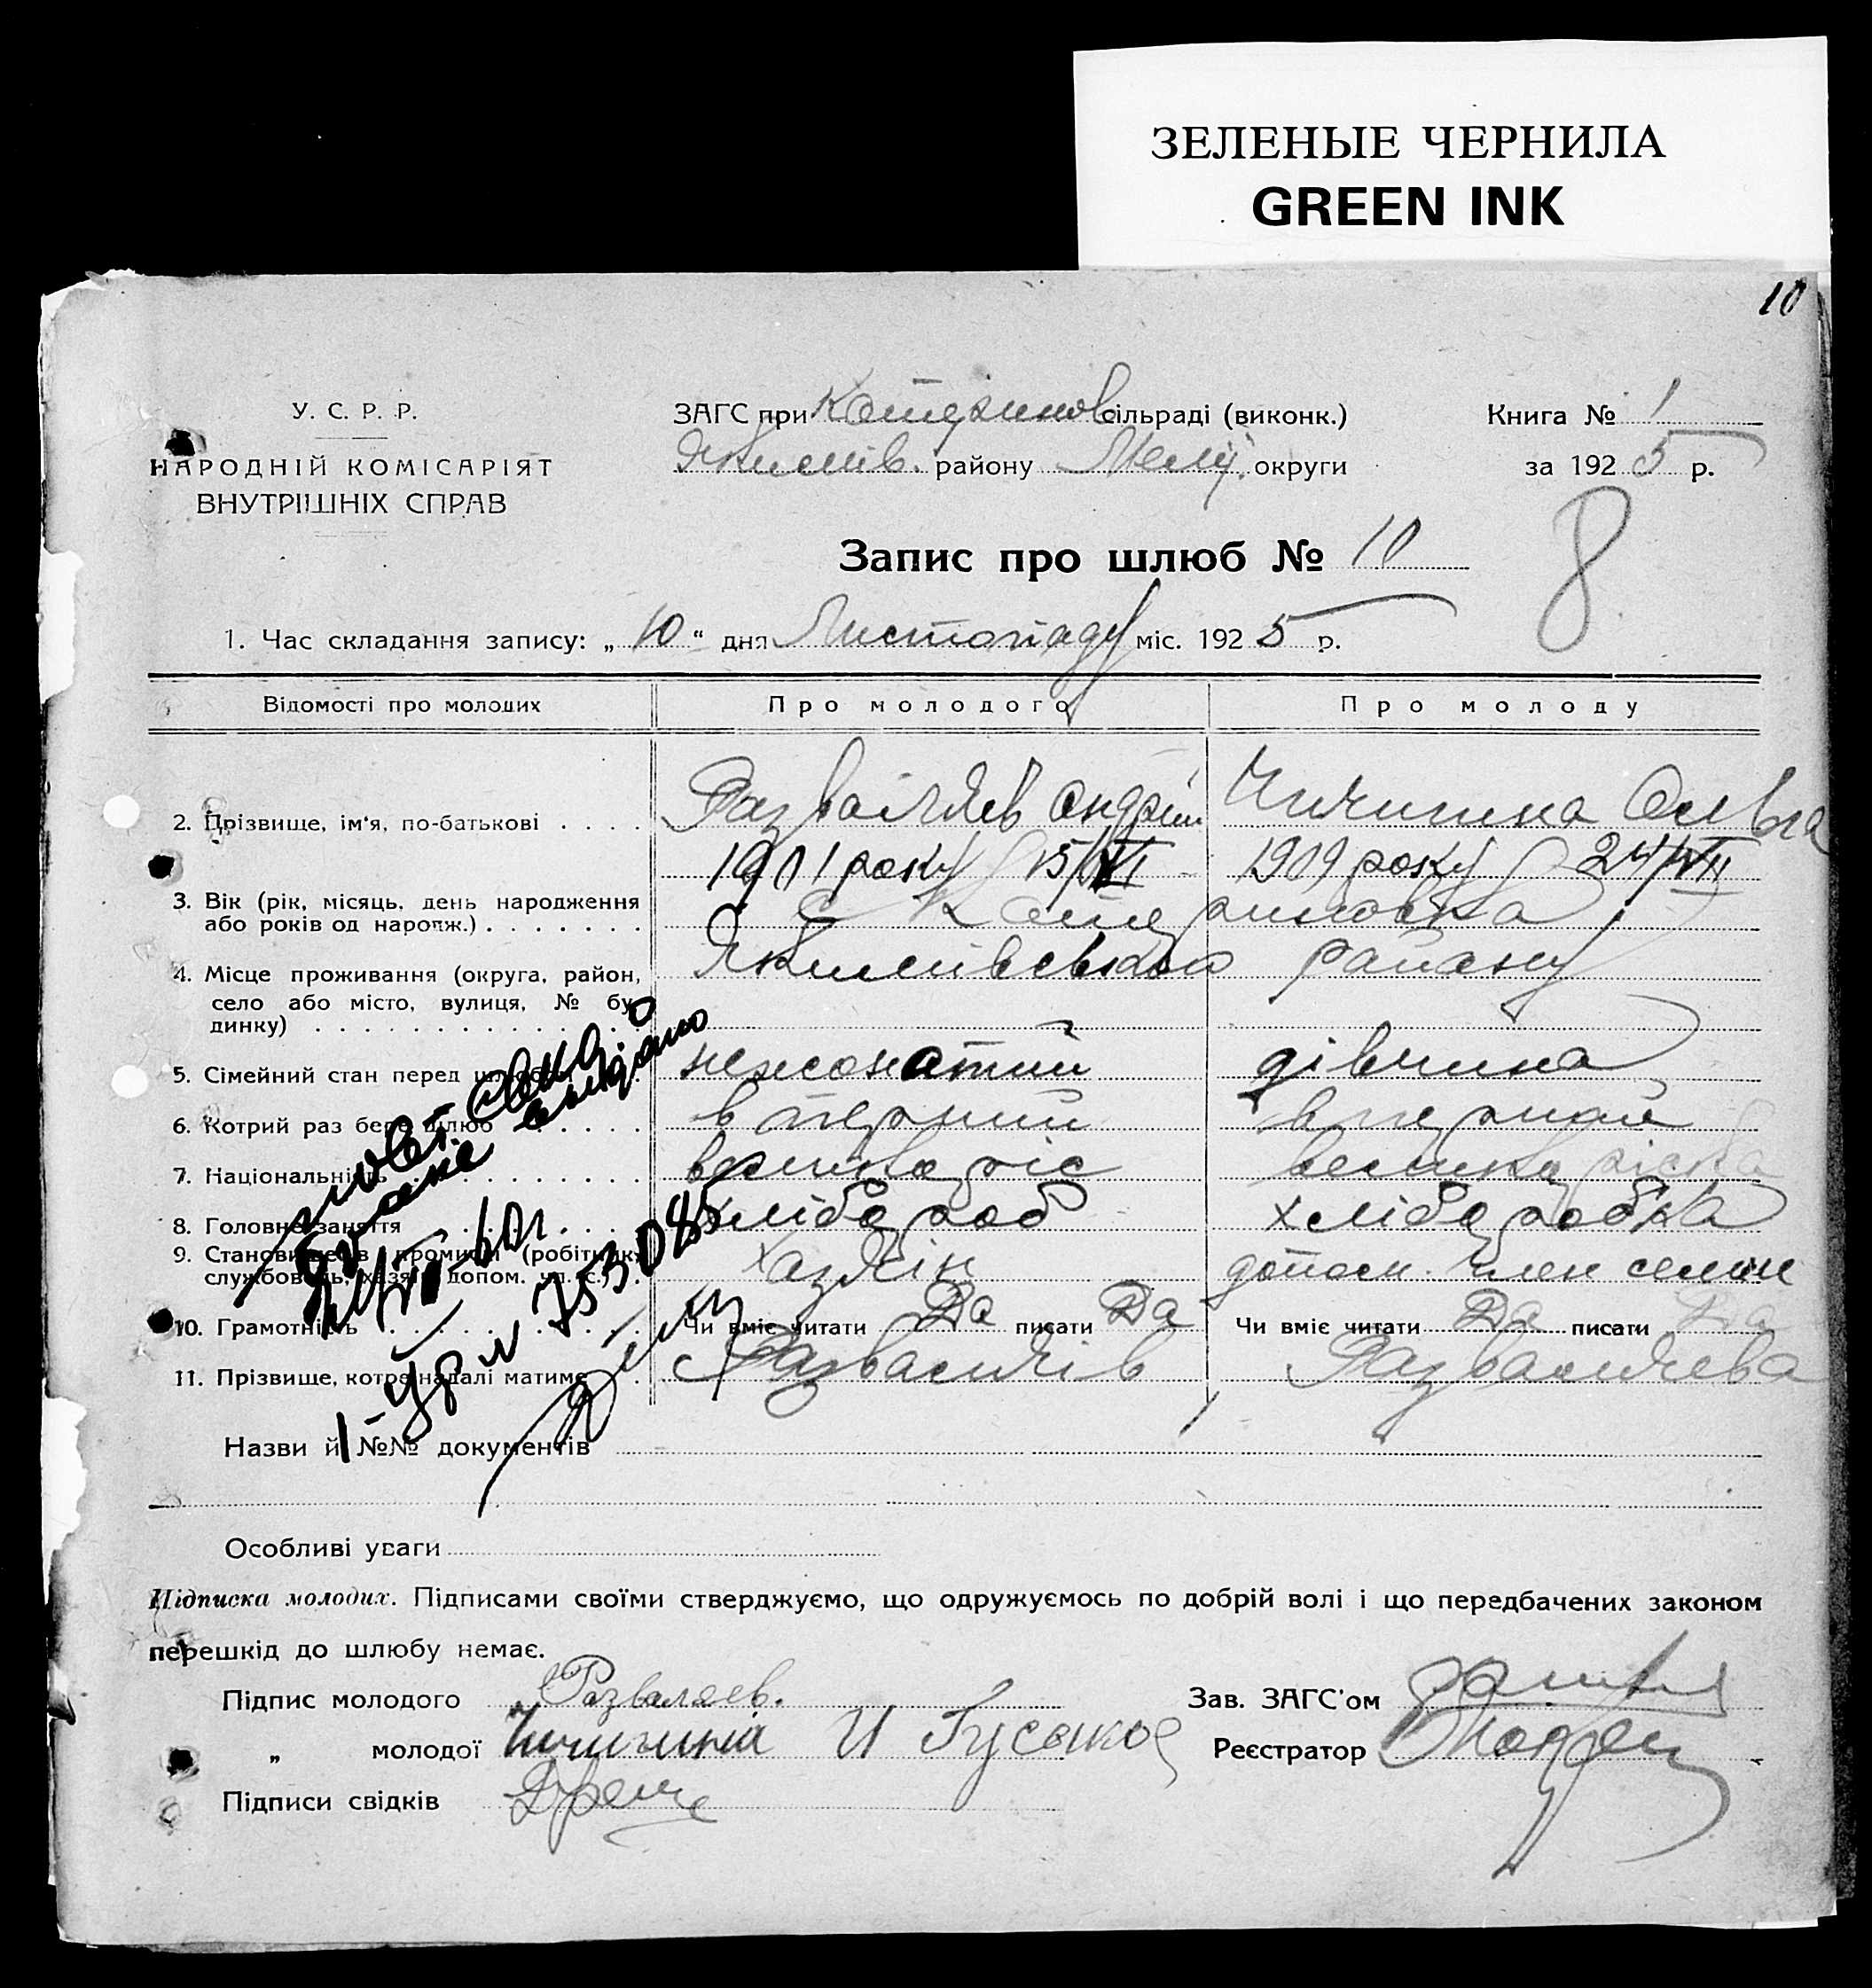 ЗЕЛЕНЫЕ ЧЕРНИЛА
GREEN INK
10
У. С. Р. Р.
НАРОДНІЙ КОМІСАРІЯТ
ВНУТРІШНІХ СПРАВ
ЗАГС при Катеринов сільраді (виконк.)
Якимів. району Меліт. округи
Книга № 1
за 1925 р.
Запис про шлюб № 10
8
1. Час складання запису: „10" дня Листопаду міс. 1925 р.
Відомості про молодих Про молодого Про молоду
2. Прізвище, ім'я, по-батькові . . . . Разваляєв Андрій Чичигина Ольга
1901 року 15/VI 1909 року 24/VII
3. Вік (рік, місяць, день народження
або років од народж.) . . . . . . .
с Катериновка
4. Місце проживання (округа, район,
село або місто, вулиця, № бу-
динку) . . . . . . . . . . . . . .
Якимівського району
5. Сімейний стан перед шлюбом нежонатий дівчина
6. Котрий раз бере шлюб . . . . . в перший в перший
7. Національність . . . . . . . . . . великорос великоруска
8. Головне заняття . . . . . хлібороб хліборобка
9. Становище в промислі (робітник,
службовець, хазяїн, допом. чл. с.) . хазяїн допом. член семии
10. Грамотність . . . . . . . . . . Чи вміє читати Да писати Да Чи вміє читати Да писати Да
11. Прізвище, котре надалі матиме . Развалиєв Развалиєва
браке выдано
60г.
№ 753085
Назви й №№ документів
Особливі уваги
Підписка молодих. Підписами своїми стверджуємо, що одружуємось по добрій волі і що передбачених законом
перешкід до шлюбу немає.
Підпис молодого Разваляев. Зав. ЗАГС'ом
„ молодої Чичигина И Гусаков Реєстратор
Підписи свідків